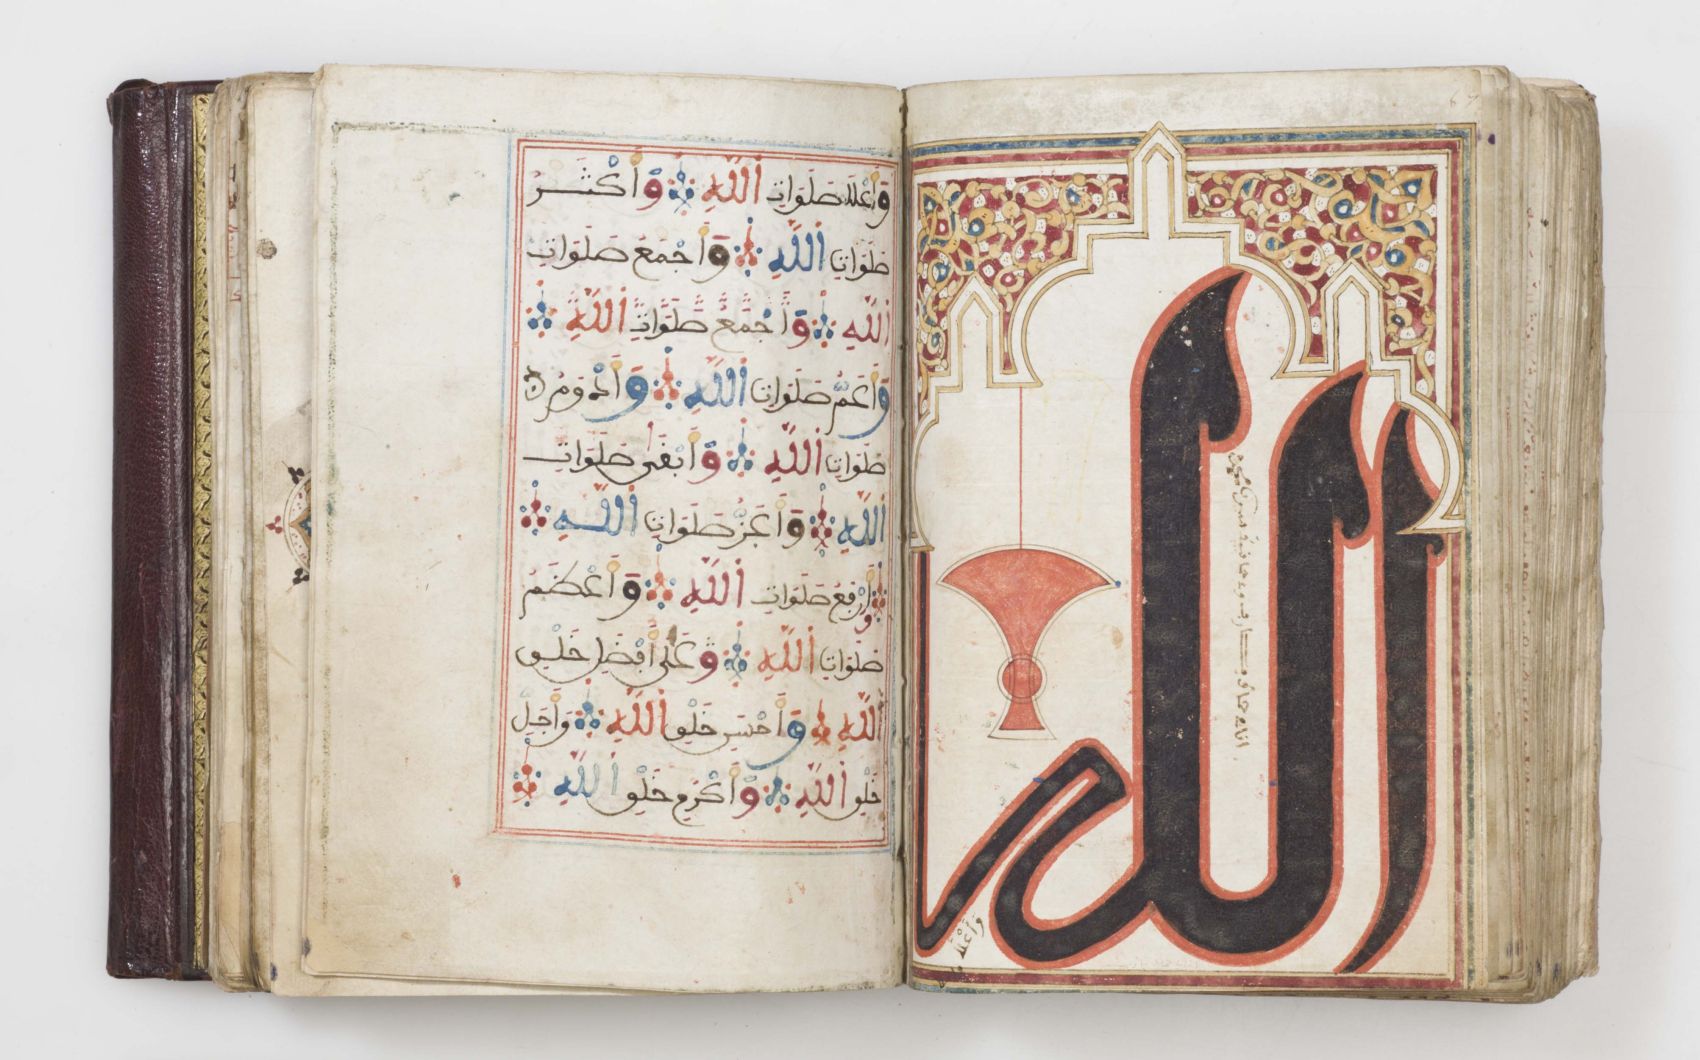 67
الله
وأعلا
وَأَعْلَا صَلَوَاتِ اللَّهِ وَأَكْثَرُ
صَلَوَاتِ اللَّهِ وَأَجْمَعُ صَلَوَاتِ
اللَّهِ وَأَجْمَعُ صَلَوَاتِ اللَّهِ
وَأَعَمُّ صَلَوَاتِ اللَّهِ وَأَدْوَمُ
صَلَوَاتِ اللَّهِ وَأَبْقَى صَلَوَاتِ
اللَّهِ وَأَعَزُّ صَلَوَاتِ اللَّهِ
وَأَرْفَعُ صَلَوَاتِ اللَّهِ وَأَعْظَمُ
صَلَوَاتِ اللَّهِ وَعَلَى أَفْضَلِ خَلْقِ
اللَّهِ وَأَحْسَنِ خَلْقِ اللَّهِ وَأَجَلِّ
خَلْقِ اللَّهِ وَأَكْرَمِ خَلْقِ اللَّهِ